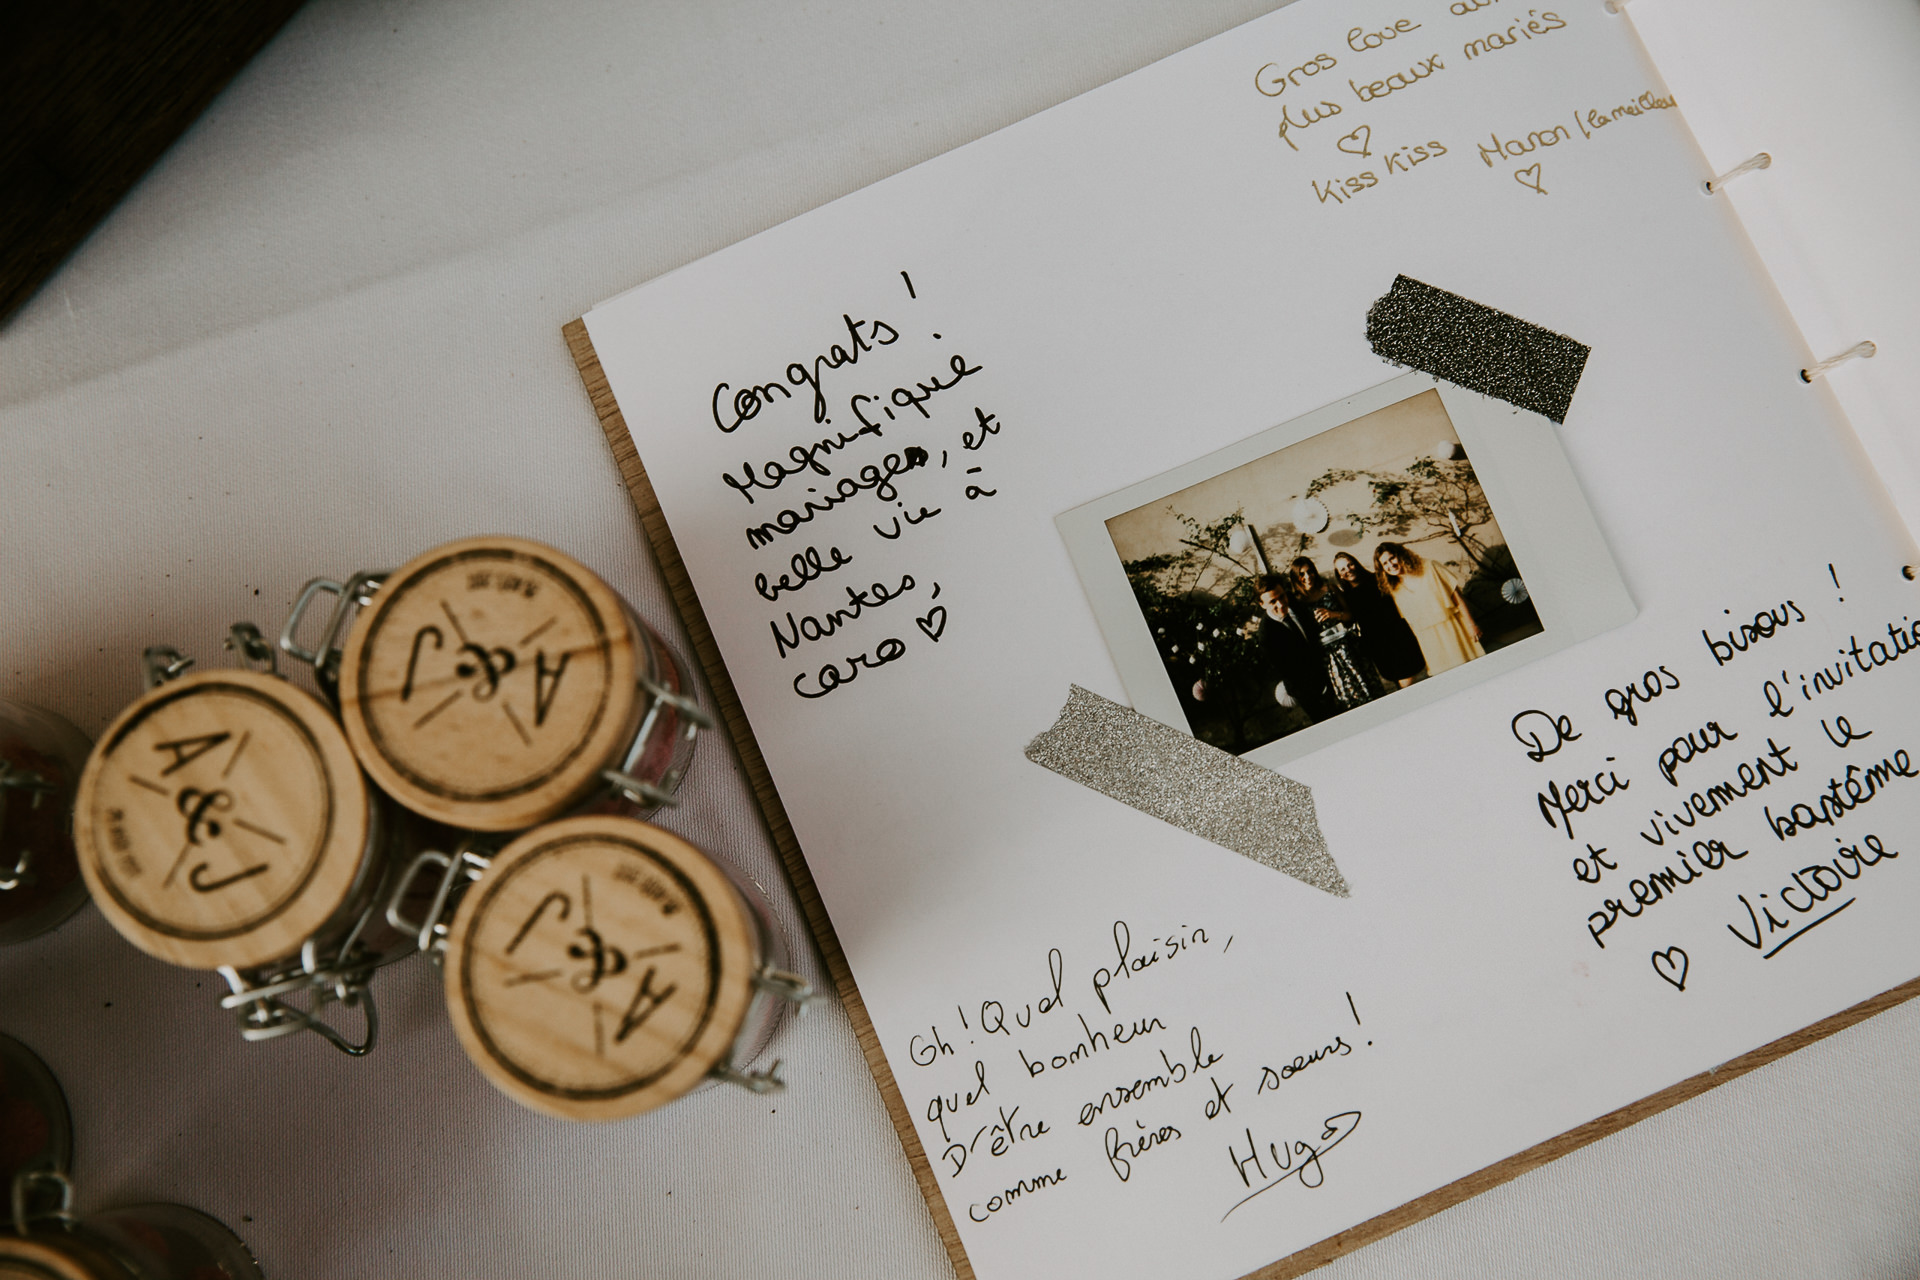 Gros love aux
plus beaux mariés
♡
Kiss Kiss Manon (la meilleu
♡
Congrats !
Magnifique
mariage, et
belle vie à
Nantes,
caro ♡
De gros bisous !
Merci pour l'invitatio
et vivement le
premier baptême
♡ Victoire
Oh! Quel plaisir,
quel bonheur
D'être ensemble
comme frères et soeurs!
Hugo
A & J
A & J
A & J